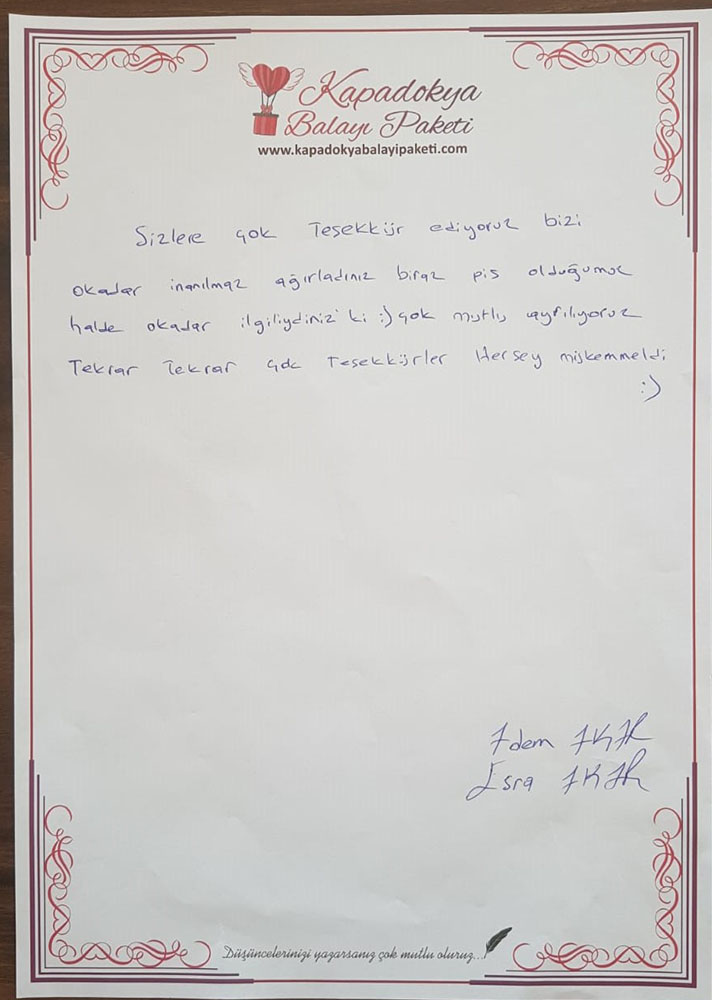 Kapadokya
Balayı Paketi
www.kapadokyabalayipaketi.com
Sizlere çok Teşekkür ediyoruz bizi
okadar inanılmaz ağırladınız biraz pis olduğumuz
halde okadar ilgiliydiniz ki :) çok mutlu ayrılıyoruz
Tekrar Tekrar çok Teşekkürler Hersey mükemmeldi
:)
Adem
Esra
Düşüncelerinizi yazarsanız çok mutlu oluruz...